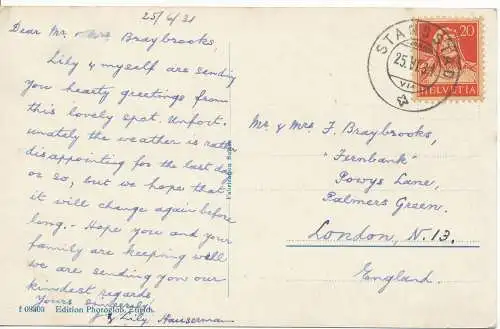 25/6/31
Dear Mr. & Mrs. Braybrooks,
Lily & myself are sending
you hearty greetings from
this lovely spot. Unfort-
unately the weather is rather
disappointing for the last day
or so, but we hope that
it will change again before
long. - Hope you and your
family are keeping well
we are sending you our
kindest regards
Yours sincerely
Lily Hauserman
f 08403 Edition Photoglob, Zürich.
20
HELVETIA
25.VI.31
Mr & Mrs F. Braybrooks,
"Fernbank"
Powys Lane,
Palmers Green.
London, N. 13.
England.